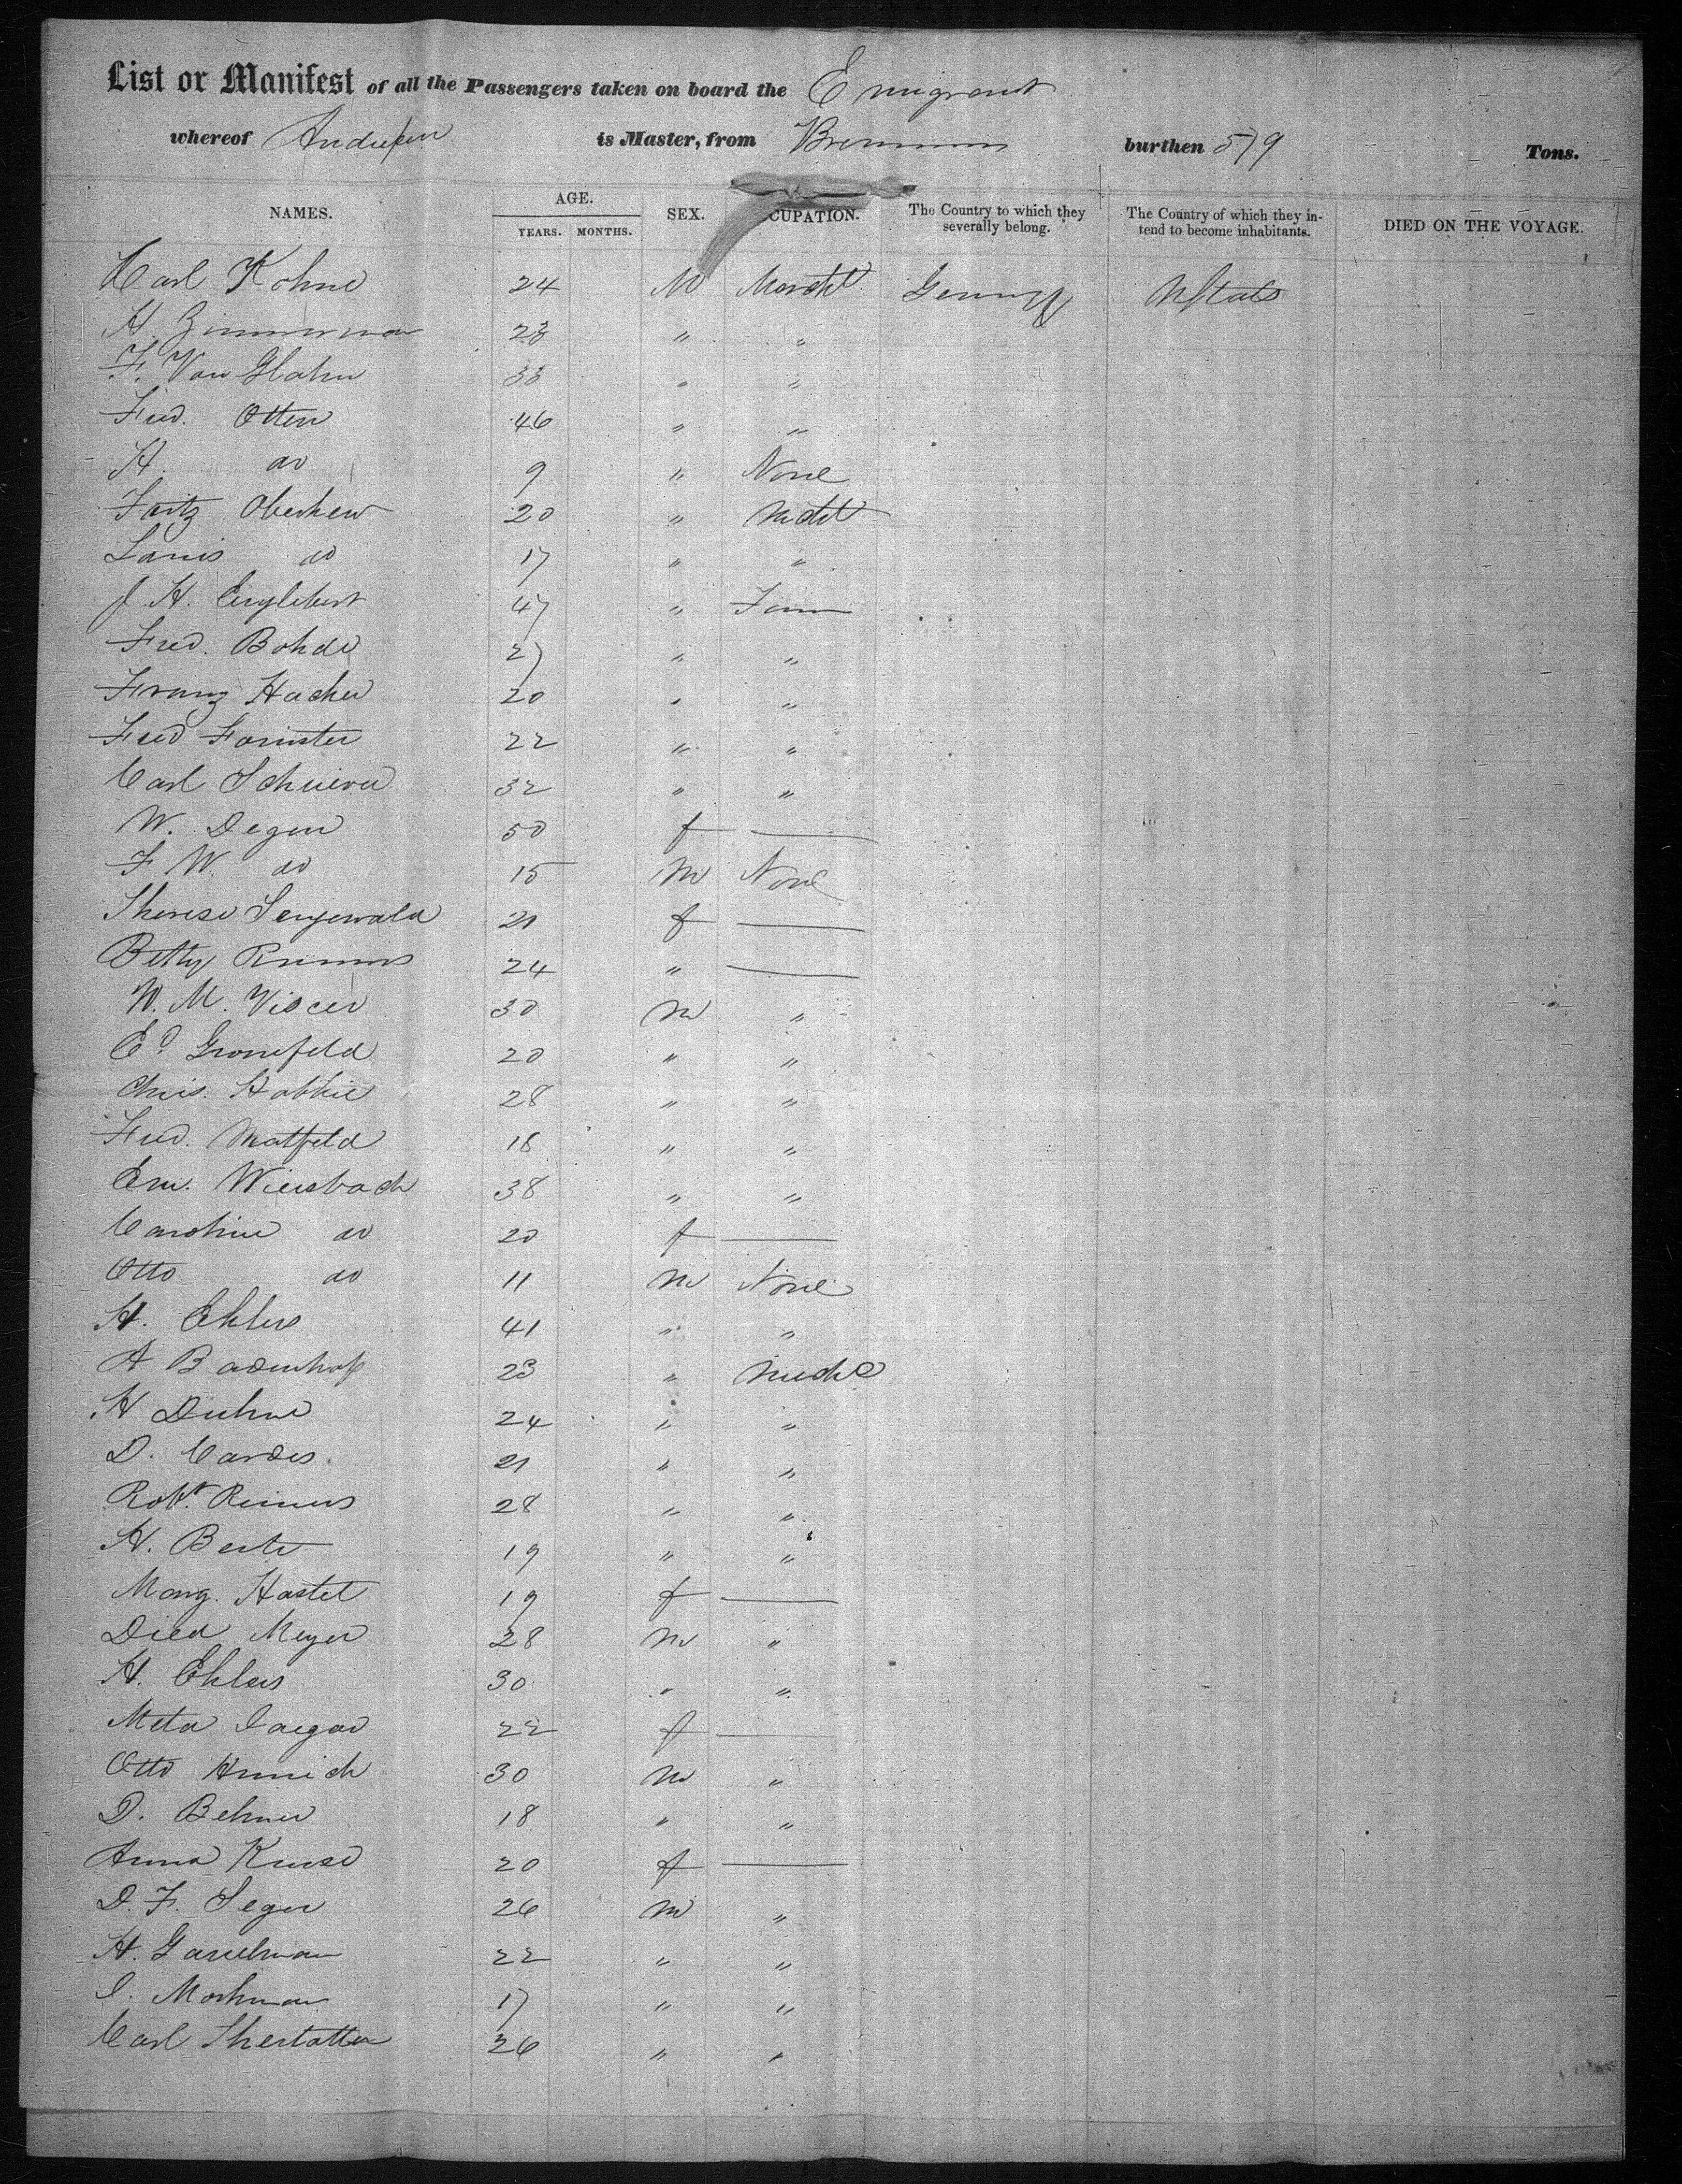 List or Manifest of all the Passengers taken on board the Emigrant
whereof is Master, from Bremmen burthen 579 Tons.
NAMES. AGE. YEARS. MONTHS. SEX. CUPATION. The Country to which they severally belong. The Country of which they intend to become inhabitants. DIED ON THE VOYAGE.
Carl Kohne 24 M Marcht Germny UStats
H. Zimmerman 23 " "
F. Von Glahn 33 " "
Fred. Otten 46 " "
H. do 9 " None
Fritz 20 " Mcht
Louis do 17 " "
J. H. Englebert 47 " Farm
Fred. Bohde 27 " "
Franz Hacker 20 " "
Fred 22 " "
Carl 32 " "
W. Degen 50 f —
F W. do 15 m None
Therese Sengewald 21 f —
Betty 24 " —
W. M. Viscer 30 m "
Ed. Gronefeld 20 " "
Chris. 28 " "
Fred. Matfeld 18 " "
Em. Wiersbach 38 " "
Caroline do 20 f —
Otto do 11 m None
H. Ehlers 41 " "
A Badenhop 23 "
H 24 " "
D. Cardes. 21 " "
Robt. Reimers 28 " "
H. 19 " "
Marg. Hastet 19 f —
Died Meyer 28 m "
H. Ehlers 30 " "
Meta 22 f —
Otto 30 m "
D. Behner 18 " "
Anna Kruse 20 f —
D. F. Seger 26 m "
H. 22 " "
17 " "
Carl 26 " "